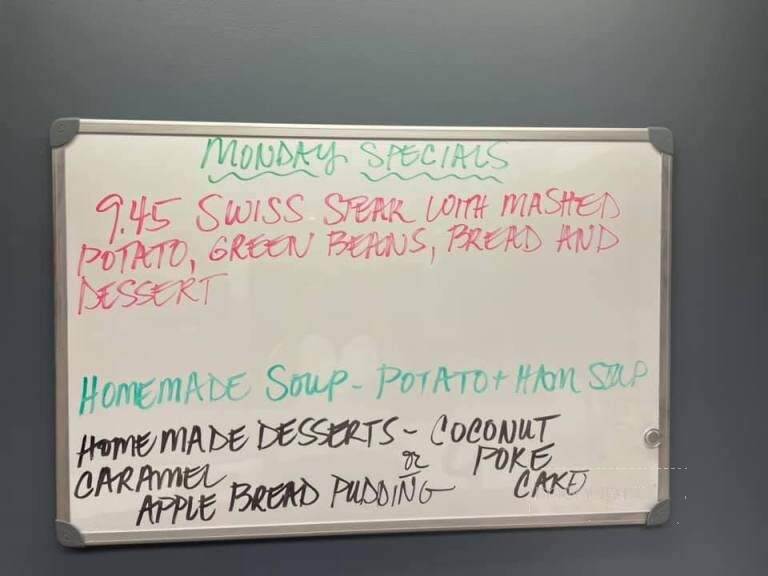 MONDAY SPECIALS
9.45 SWISS STEAK WITH MASHED
POTATO, GREEN BEANS, BREAD AND
DESSERT
HOMEMADE SOUP - POTATO + HAM SOUP
HOMEMADE DESSERTS - COCONUT
CARAMEL or POKE
APPLE BREAD PUDDING CAKE